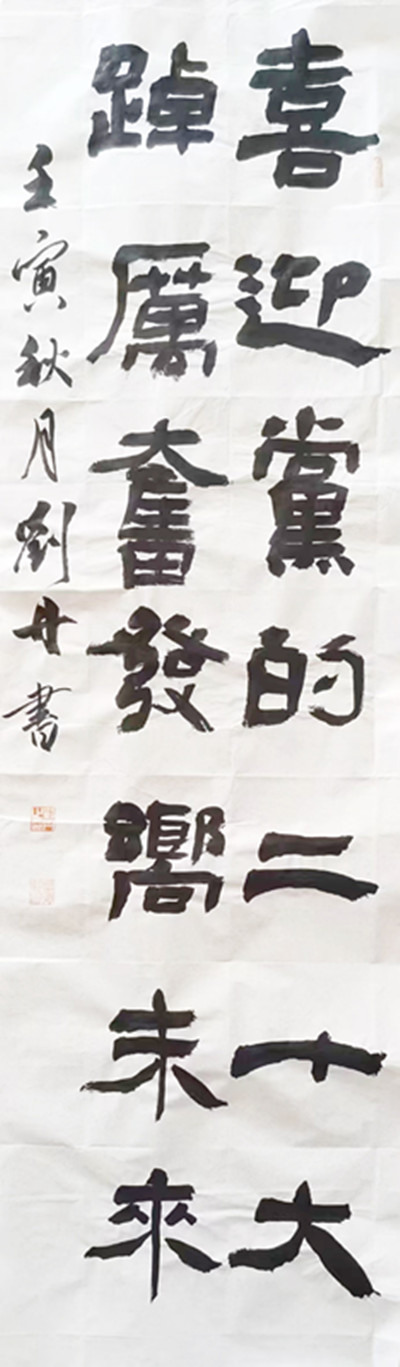 喜迎黨的二十大
踔厲奮發嚮未來
壬寅秋月劉丹書